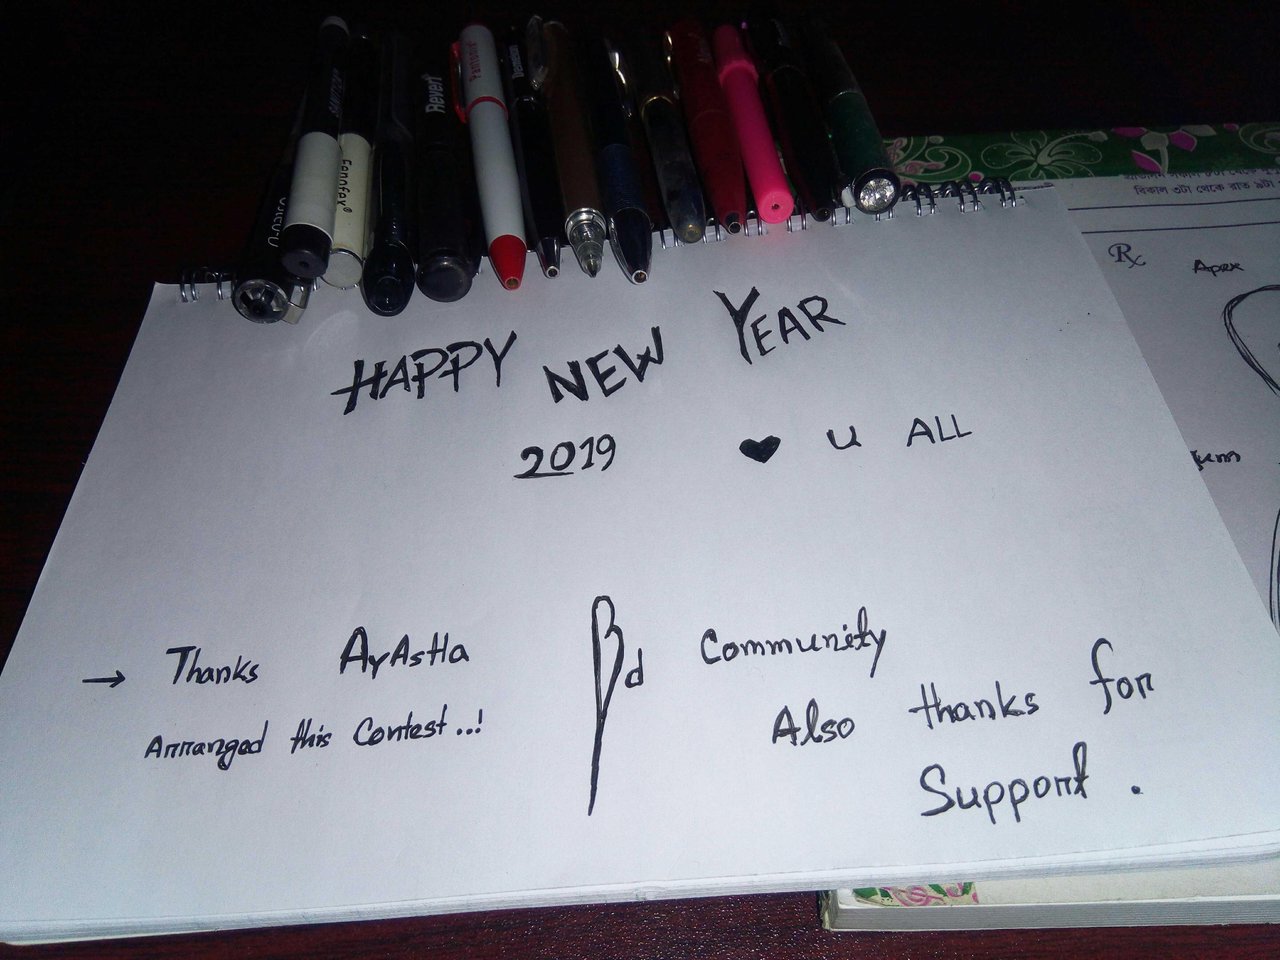 Revert
Pamonix
Fenofex®
বিকাল ৩টা থেকে রাত
Rx
Apex
HAPPY NEW YEAR
2019 ♥ U ALL
→ Thanks AyAstHa
Arranged this Contest..!
Bd Community
Also thanks for
Support.